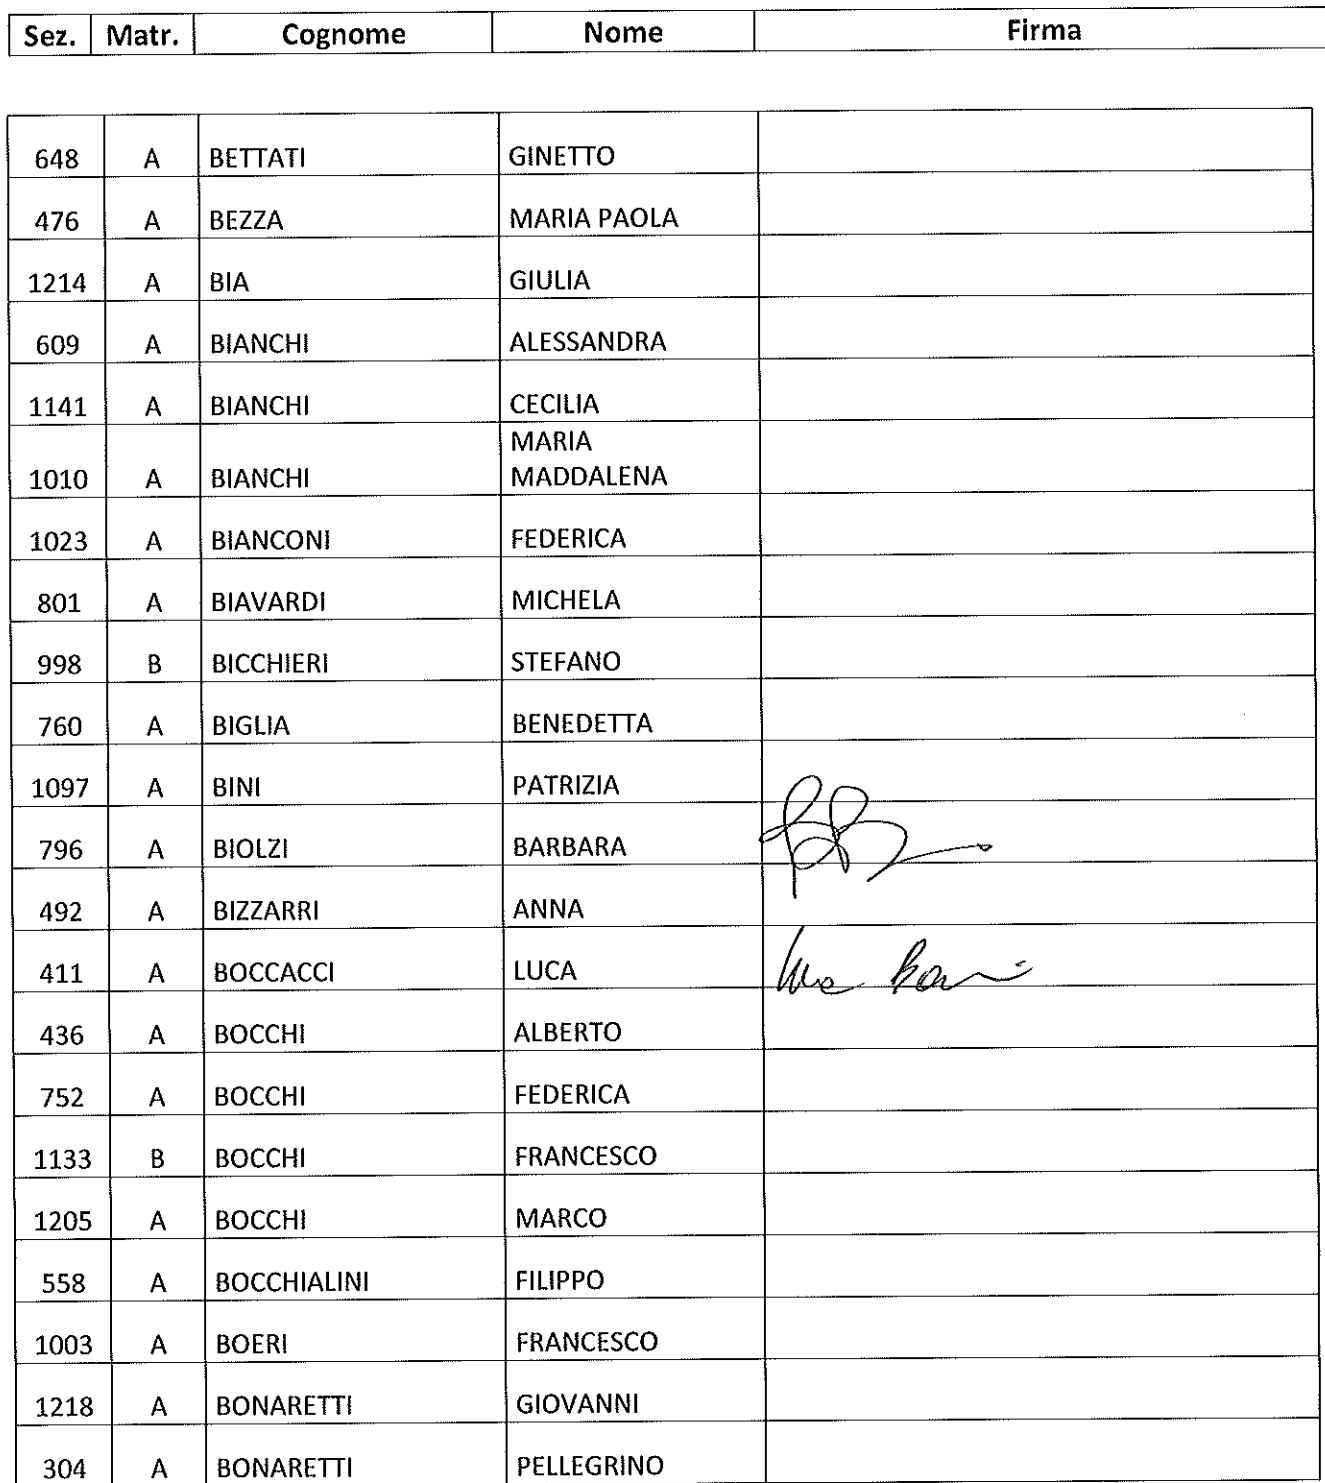 Sez. Matr. Cognome Nome Firma
648 A BETTATI GINETTO
476 A BEZZA MARIA PAOLA
1214 A BIA GIULIA
609 A BIANCHI ALESSANDRA
1141 A BIANCHI CECILIA
MARIA
1010 A BIANCHI MADDALENA
1023 A BIANCONI FEDERICA
801 A BIAVARDI MICHELA
998 B BICCHIERI STEFANO
760 A BIGLIA BENEDETTA
1097 A BINI PATRIZIA
796 A BIOLZI BARBARA
492 A BIZZARRI ANNA
411 A BOCCACCI LUCA
436 A BOCCHI ALBERTO
752 A BOCCHI FEDERICA
1133 B BOCCHI FRANCESCO
1205 A BOCCHI MARCO
558 A BOCCHIALINI FILIPPO
1003 A BOERI FRANCESCO
1218 A BONARETTI GIOVANNI
304 A BONARETTI PELLEGRINO